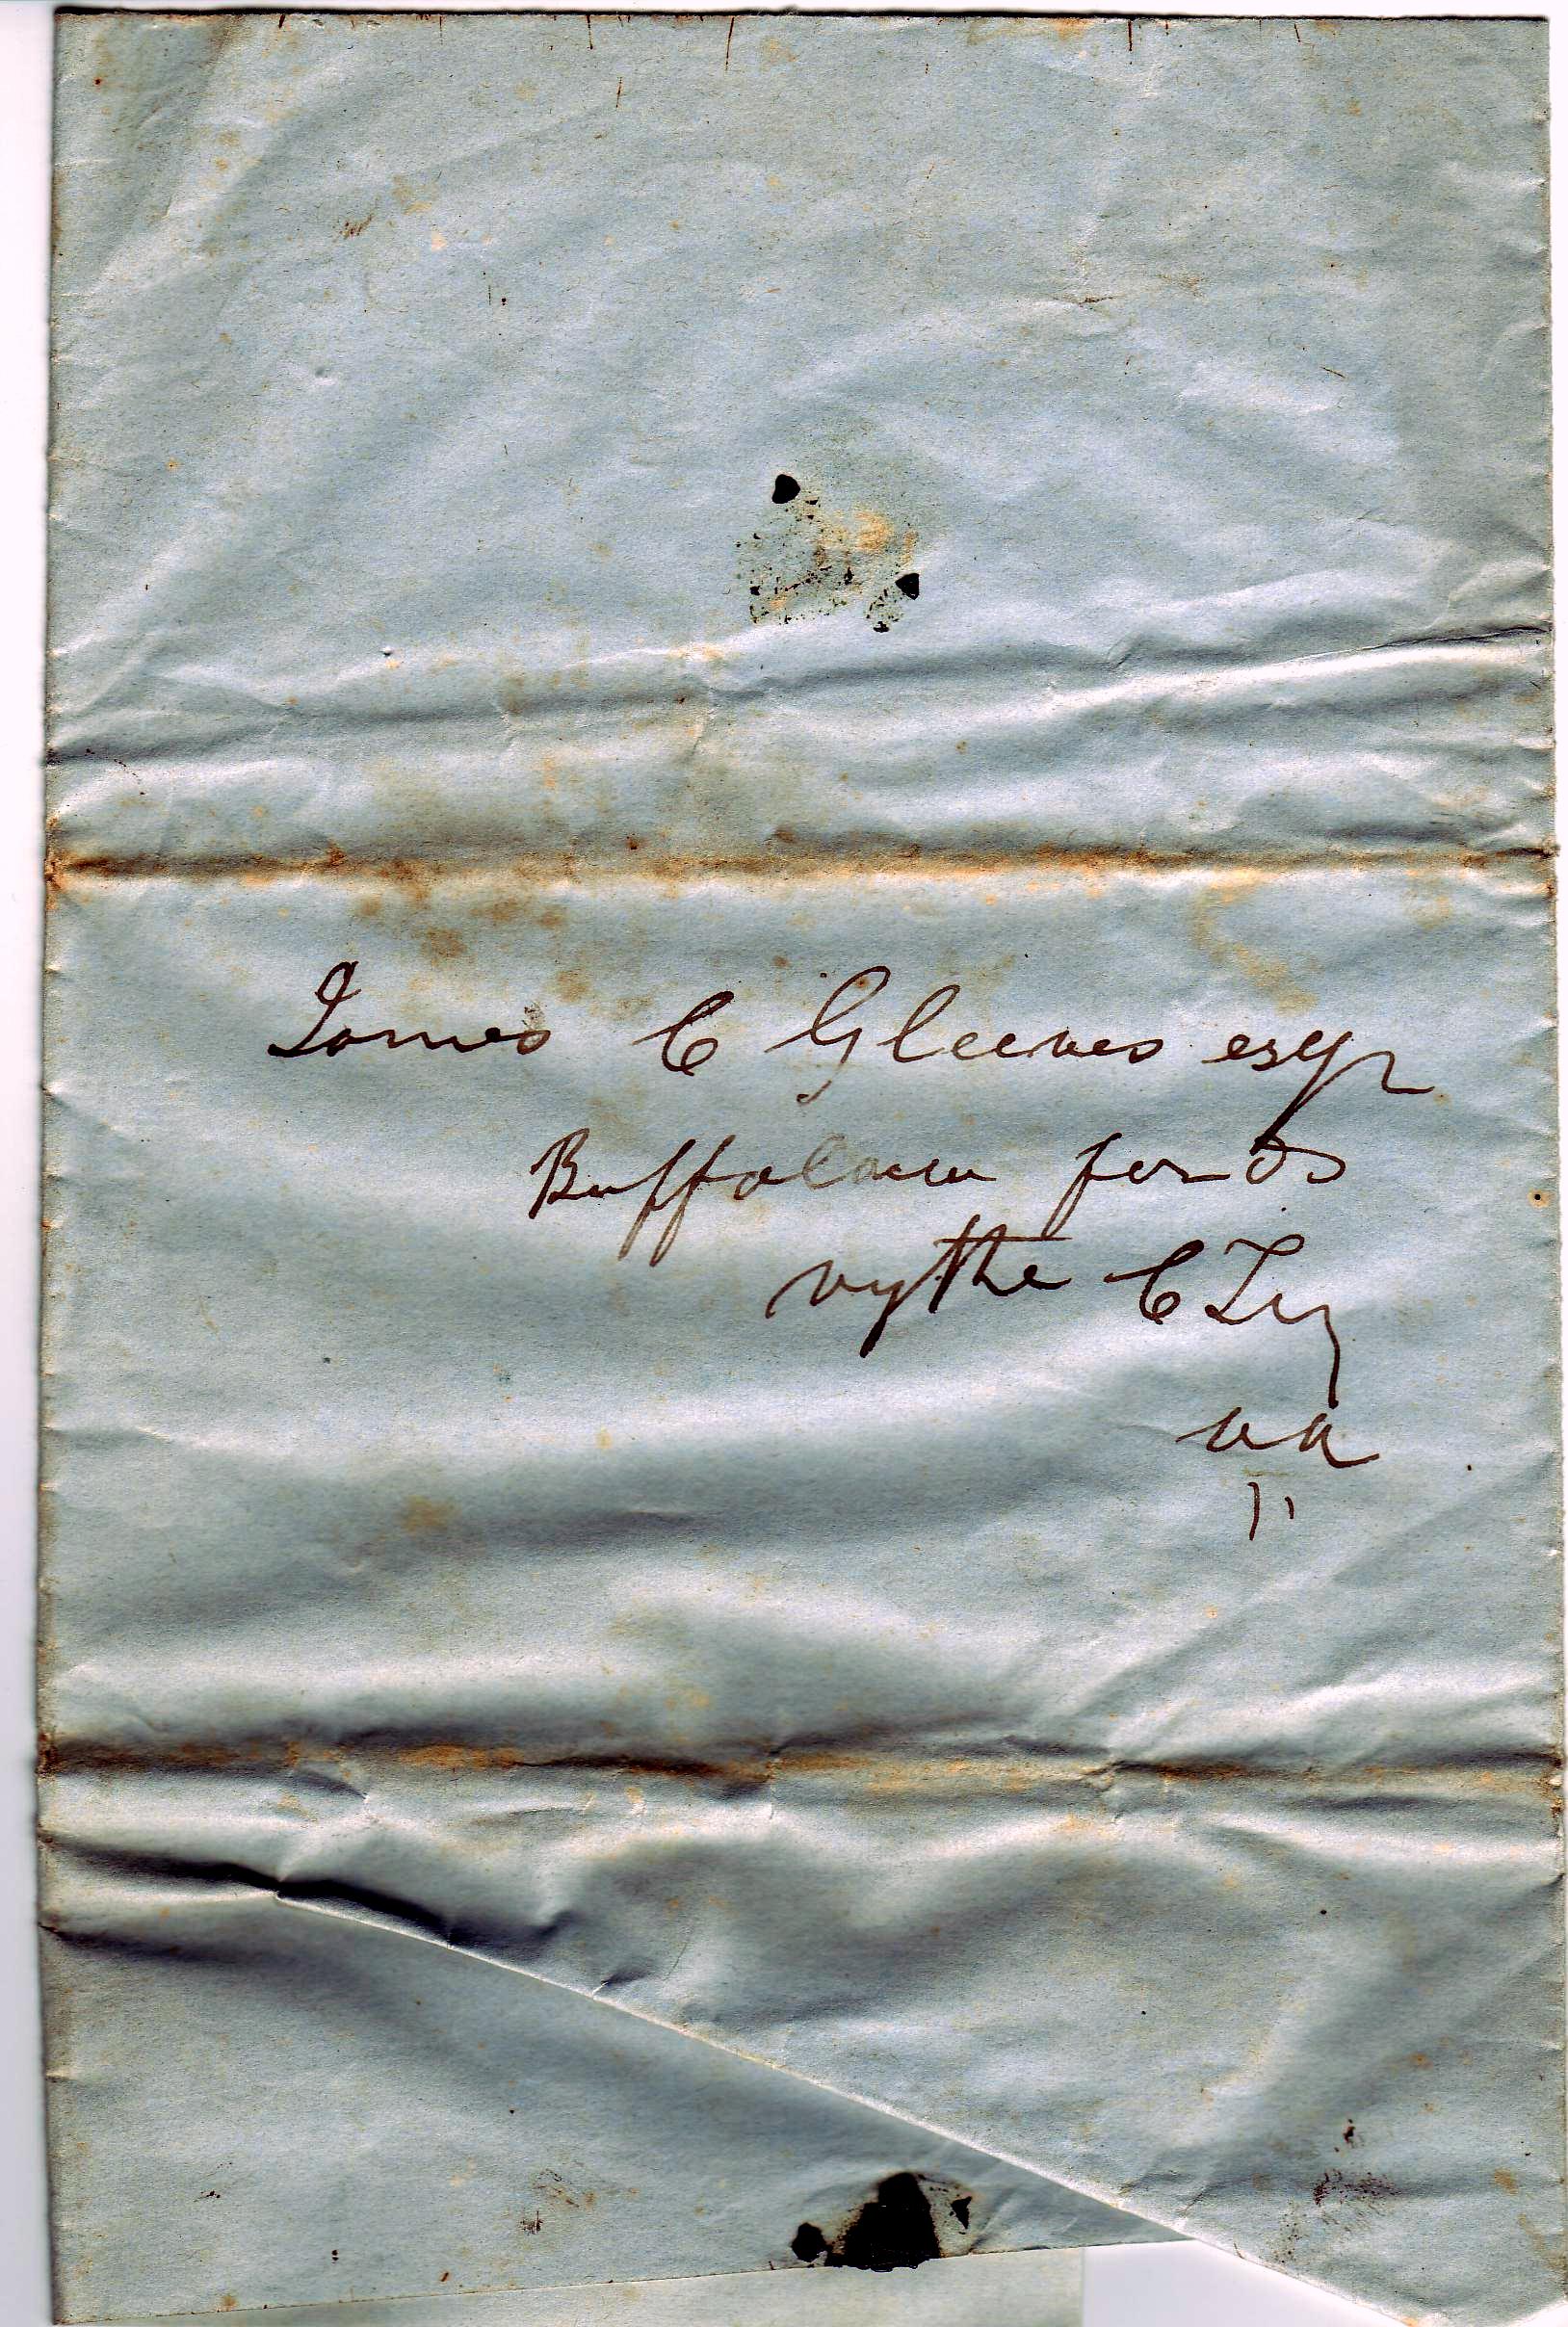 James C Gleeves esqr
Buffalaw fords
wythe CTy
va